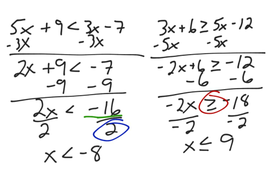 5x + 9 < 3x - 7
-3x -3x
2x + 9 < -7
-9 -9
2x < -16
2 2
x < -8
3x + 6 ≥ 5x - 12
-5x -5x
-2x + 6 ≥ -12
-6 -6
-2x ≥ -18
-2 2
x ≤ 9